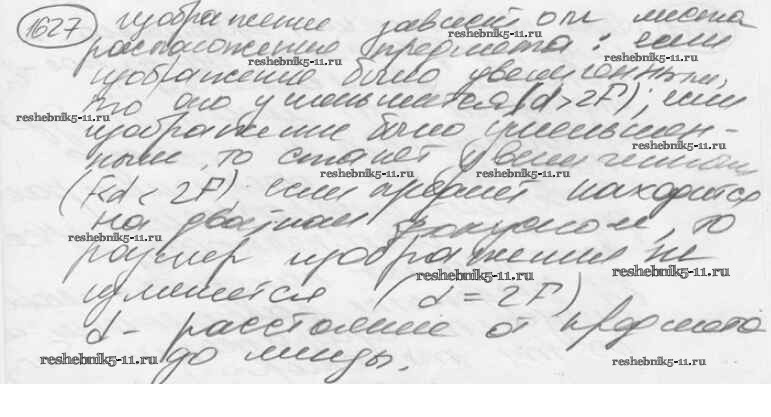 1627 изображение зависит от места
расположение предмета: если
изображение было увеличенным,
то оно уменьшится (d>2F); если
изображение было уменьшен-
ным, то станет увеличенным
(F<d<2F) если предмет находится
на двойном фокусном, то
размер изображения не
изменется (d=2F)
d - расстояние от предмета
до линзы.
reshebnik5-11.ru
reshebnik5-11.ru
reshebnik5-11.ru
reshebnik5-11.ru
reshebnik5-11.ru
reshebnik5-11.ru
reshebnik5-11.ru
reshebnik5-11.ru
reshebnik5-11.ru
reshebnik5-11.ru
reshebnik5-11.ru